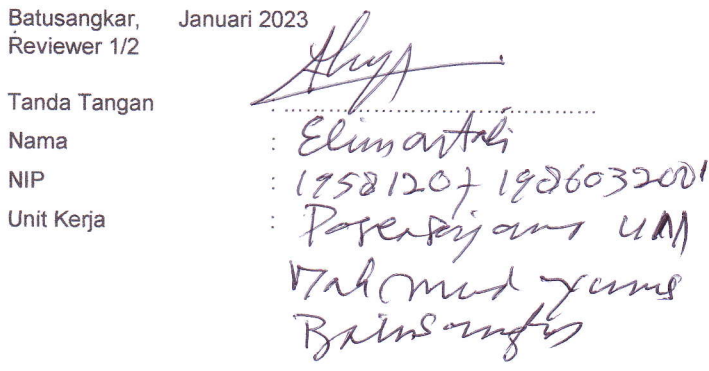 Batusangkar, Januari 2023
Reviewer 1/2
Tanda Tangan : ..........................................
Nama : Elimartati
NIP : 19581207 198603 2001
Unit Kerja : Pascasarjana UIN
Mahmud Yunus
Batusangkar